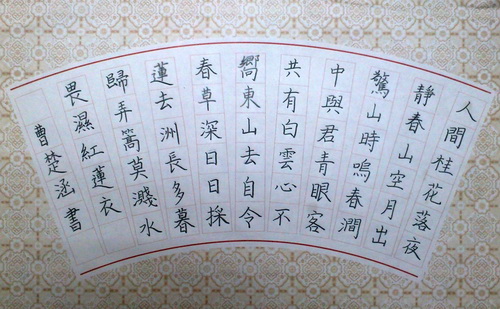 人間桂花落夜
靜春山空月出
驚山時鳴春澗
中與君青眼客
共有白雲心不
嚮東山去自令
春草深日日採
蓮去洲長多暮
歸弄篙莫濺水
畏濕紅蓮衣
曹楚涵書